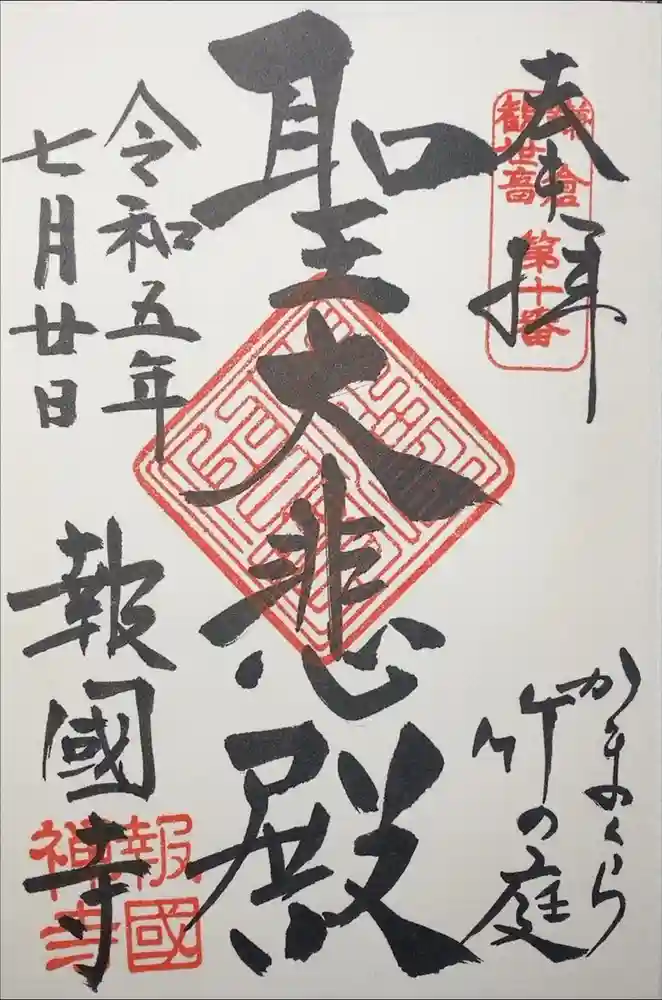 奉拝
鎌倉
観世音
第十番
かまくら
竹の庭
聖大悲殿
令和五年
七月廿日
報國寺
報國
禅寺